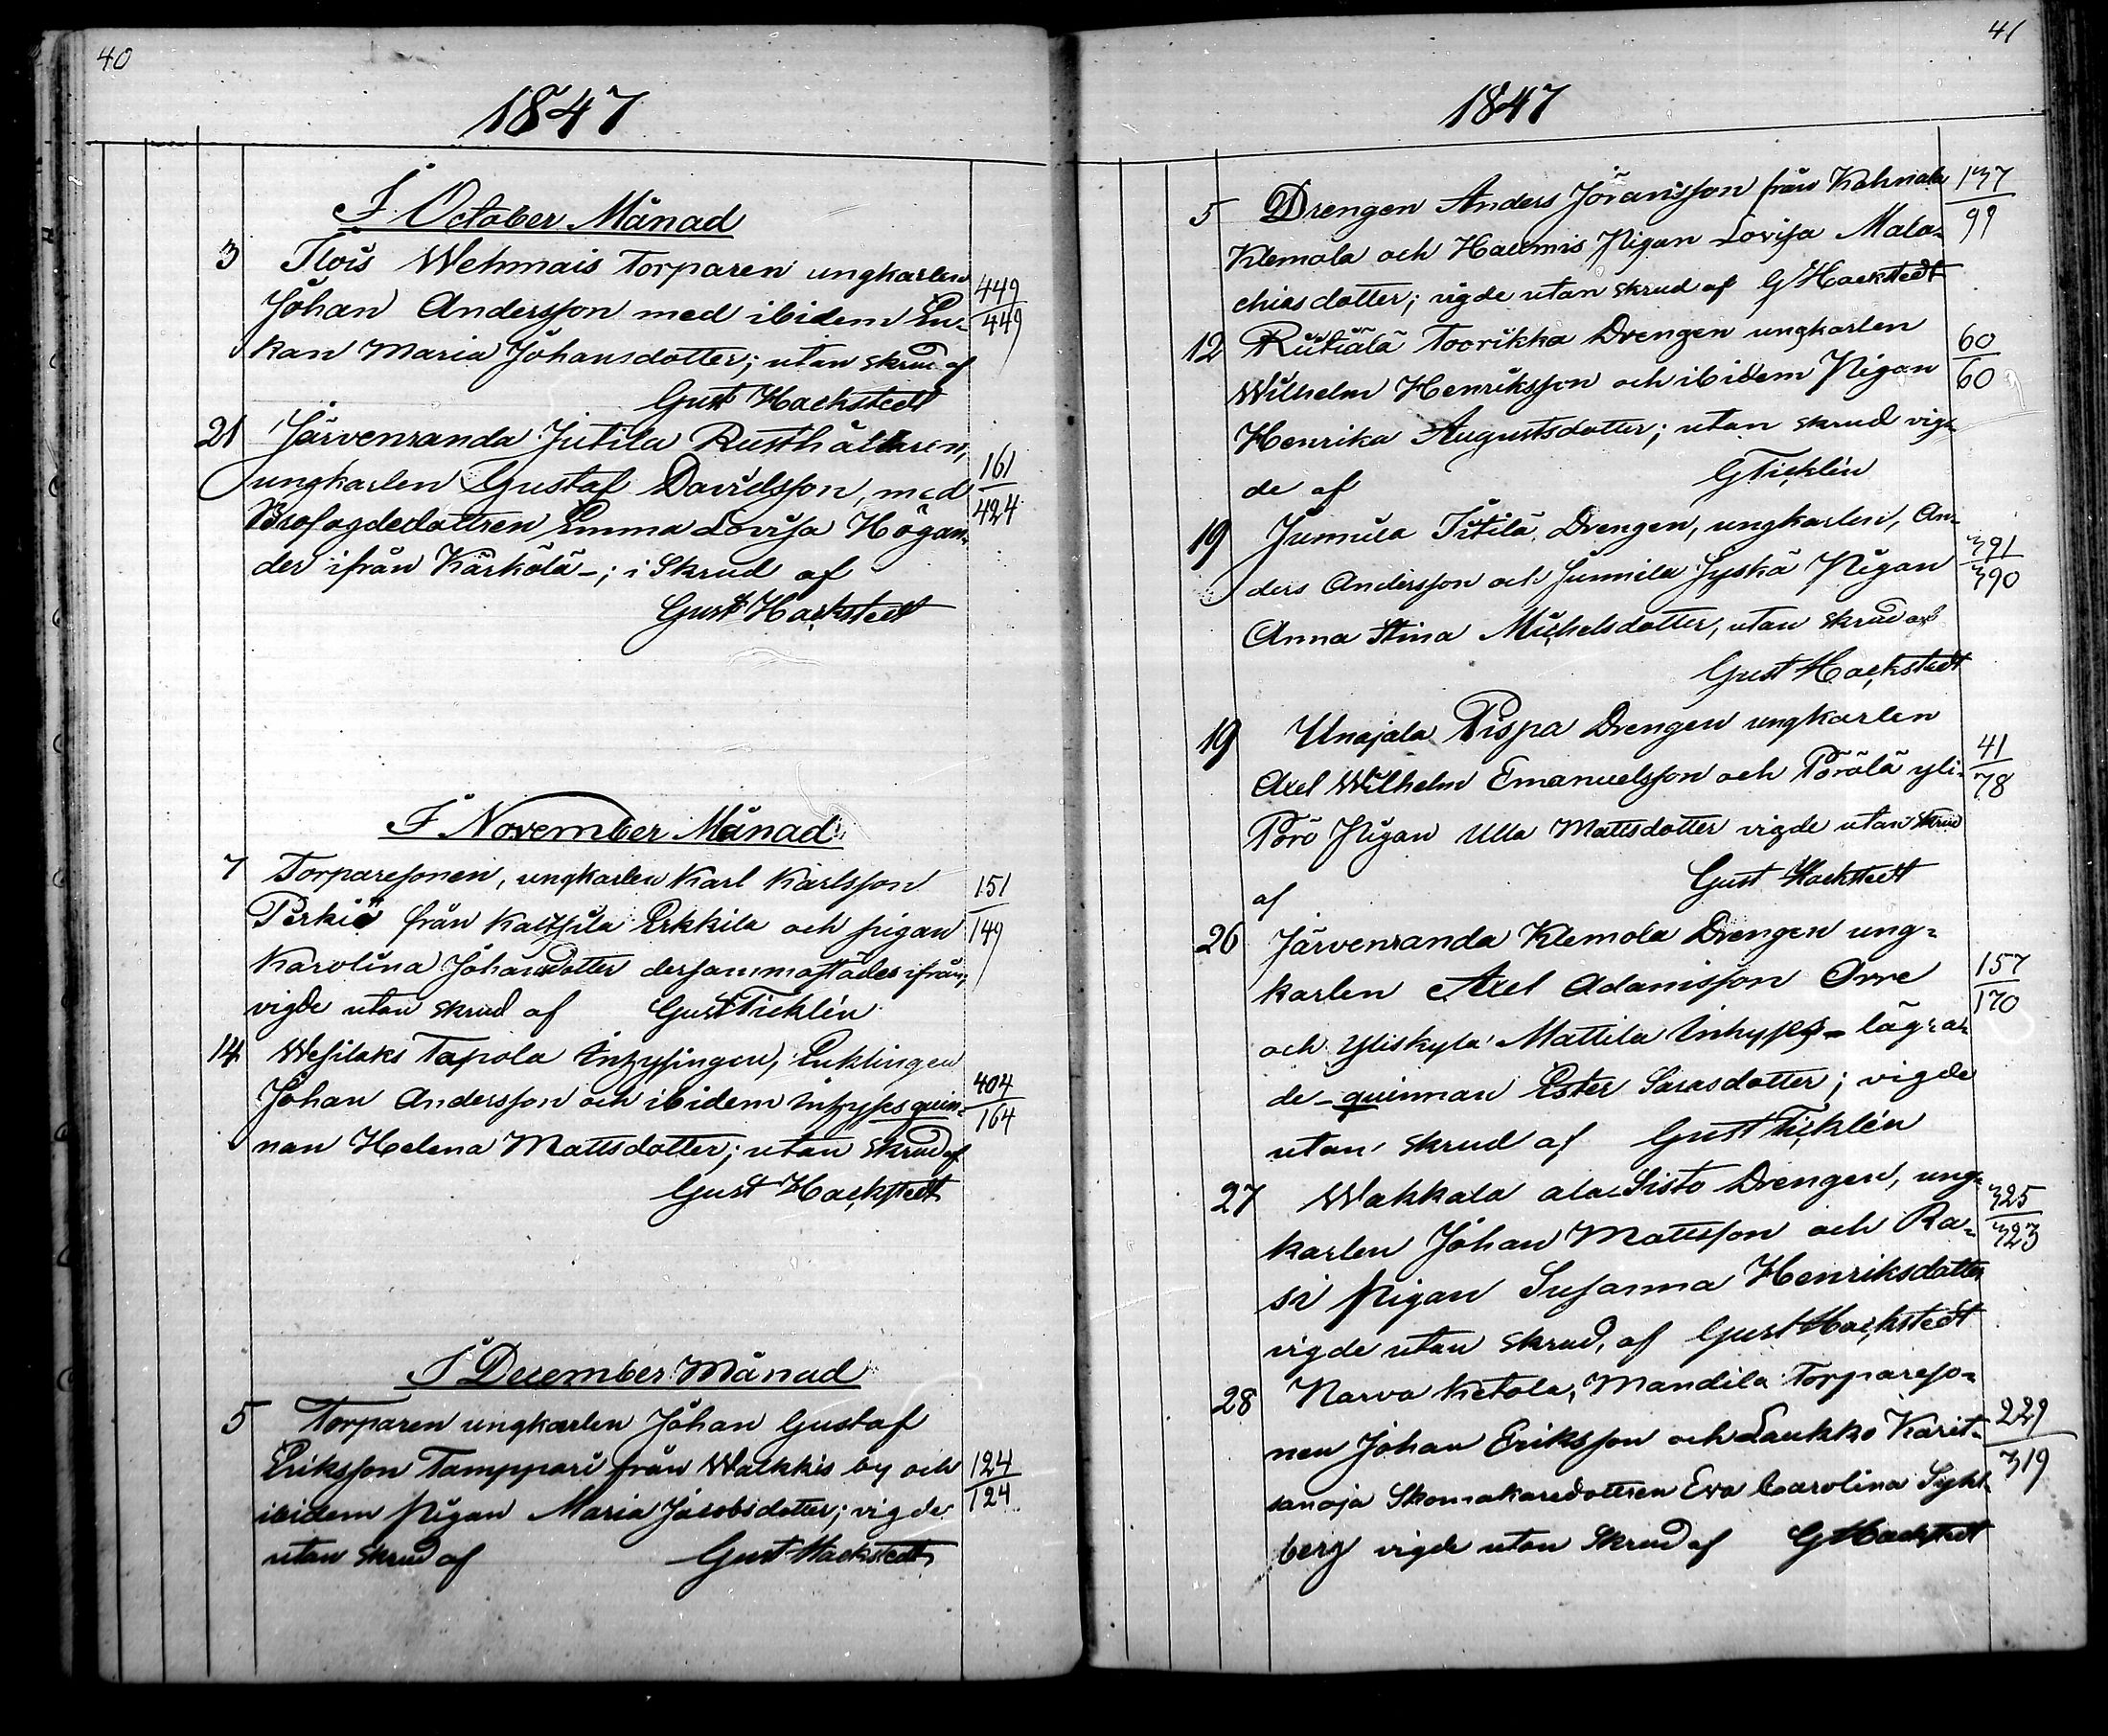 40
1847
I October Månad
3 Flois Wehmais Torparen ungkarlen 449
Johan Andersson med ibidem En- 449
kan Maria Johansdotter; utan skrud af
Gust Hackstedt
21 Järvenranda Jutila Rusthållaren,
ungkarlen Gustaf Davidsson, med 161
Brofogdedottren Emma Lovisa Högan- 424
der ifrån Kärkölä -; i Skrud af
Gust Hackstedt
I November Månad
7 Torparesonen, ungkarlen Karl Karlsson 151
Perkiö från Kaltsila Erkkila och pigan 149
Karolina Johansdotter dersammastädes ifrån;
vigde utan skrud af Gust Ticklén
14 Wesilaks Tapola Inhysingen, Enklingen
Johan Andersson och ibidem inhyses quin- 404
nan Helena Mattsdotter; utan skrud af 164
Gust Hackstedt
I December Månad
5 Torparen ungkarlen Johan Gustaf
Eriksson Tamppari från Walkkis by och 124
ibidem Pigan Maria Jacobsdotter; vigde 124
utan skrud af Gust Hackstedt
41
1847
5 Drengen Anders Jöransson från Kahnala 137
Klemola och Haermis Pigan Lovisa Mala- 99
chiasdotter; vigde utan skrud af G Hackstedt
12 Riitiälä Toorikka Drengen ungkarlen 60
Wilhelm Henriksson och ibidem Pigan 60
Henrika Augustsdotter; utan skrud vig-
de af G Ticklén
19 Jumula Iitilä Drengen, ungkarlen, An- 391
ders Andersson och Jumila Jyskä Pigan 390
Anna Stina Michelsdotter, utan skrud af
Gust Hackstedt
19 Unajala Pispa Drengen ungkarlen 41
Axel Wilhelm Emanuelsson och Pörölä yli- 78
Pörö Pigan Ulla Mattsdotter vigde utan skrud
af Gust Hackstedt
26 Järvenranda Klemola Drengen ung-
karlen Axel Adamsson Orre 157
och Yliskylä Mattila Inhyses - lägra- 170
de - quinnan Ester Sarasdotter; vigde
utan skrud af Gust Ticklén
27 Wakkala ala Sisto Drengen, ung- 325
karlen Johan Mattsson och Ra- 323
si Pigan Susanna Henriksdotter
vigde utan skrud, af Gust Hackstedt
28 Narva Ketola, Mandila Torpareso- 229
nen Johan Eriksson och Laukko Karit- 319
sanoja Skomakaredottren Eva Carolina Sykt-
berg vigde utan Skrud af G Hackstedt